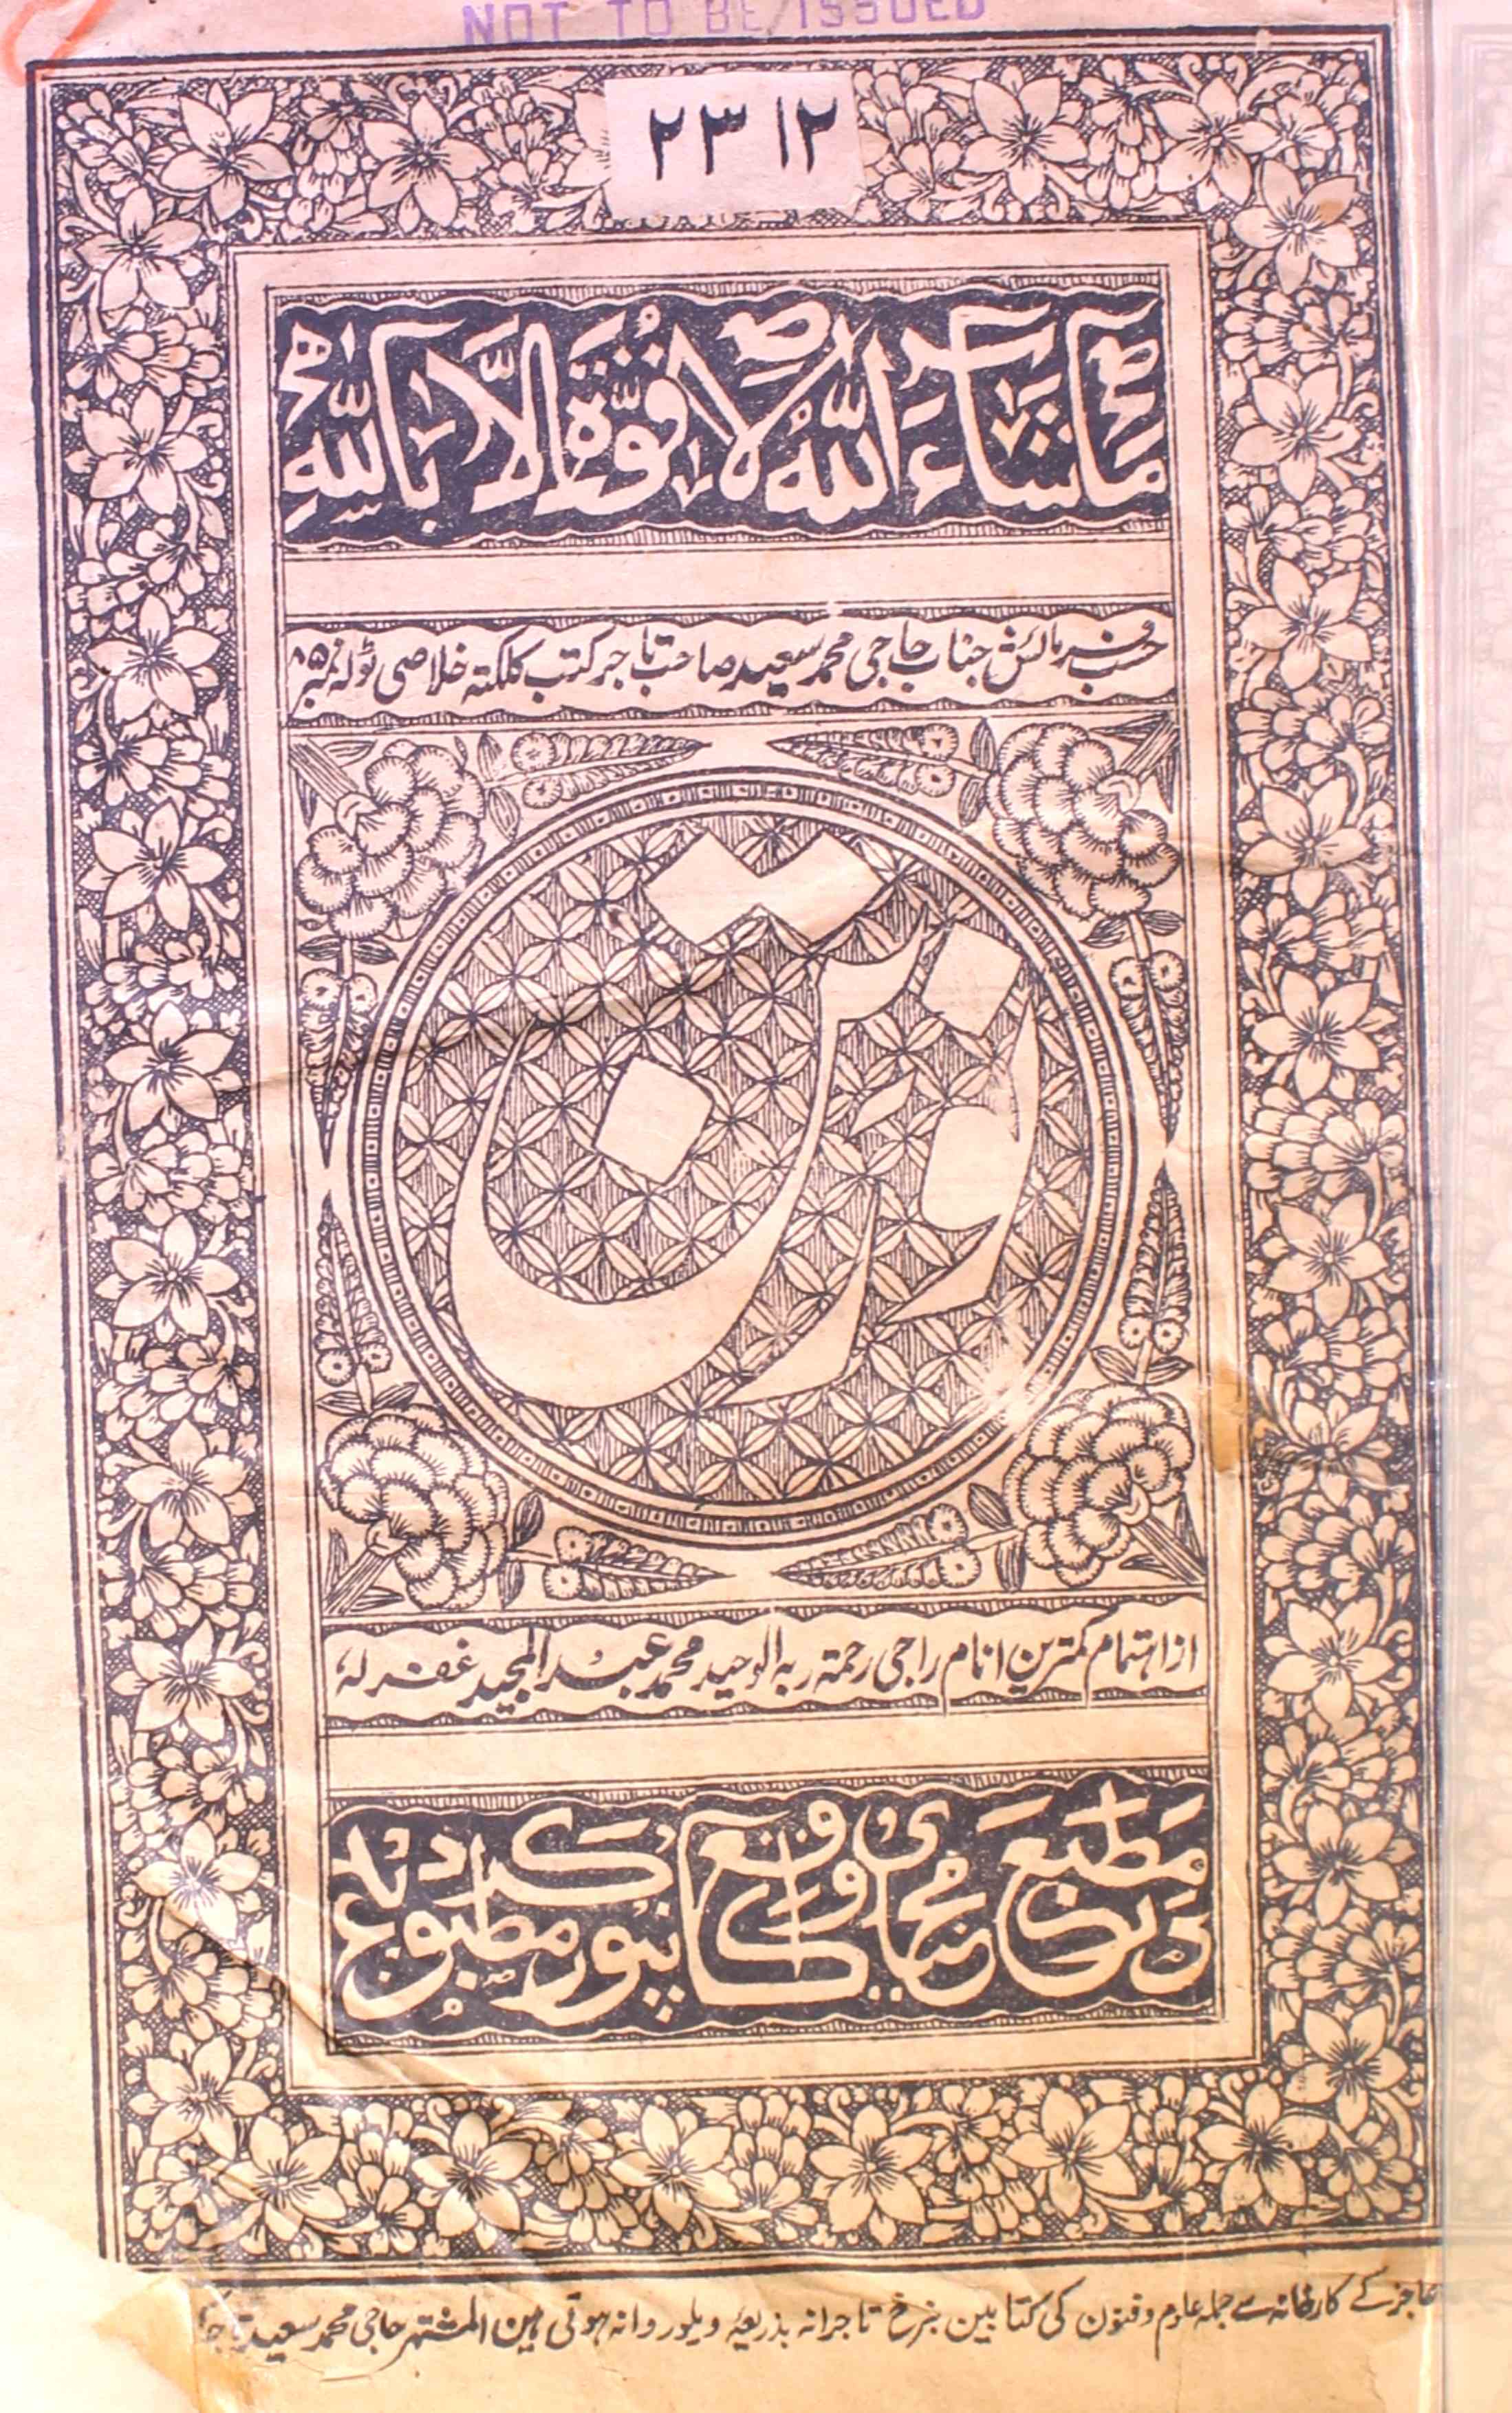 NOT TO BE ISSUED
۲۳۱۲
مَاشَآءَ اللّٰهُ لَا قُوَّةَ اِلَّا بِاللّٰهِ
حسب فرمائش جناب حاجی محمد سعید صاحب تاجر کتب کلکتہ خلاصی ٹولہ نمبر ۸۵
نورتن
از اہتمام کمترین انام راجی رحمة ربہ الوحید محمد عبد المجید غفر لہ
مطبع مجیدی واقع کانپور مطبوع گردید
عاجز کے کارخانہ سے جملہ علوم و فنون کی کتابین بنرخ تاجرانہ بذریعۂ ویلور روانہ ہوتی ہین المشتہر حاجی محمد سعید تاجر